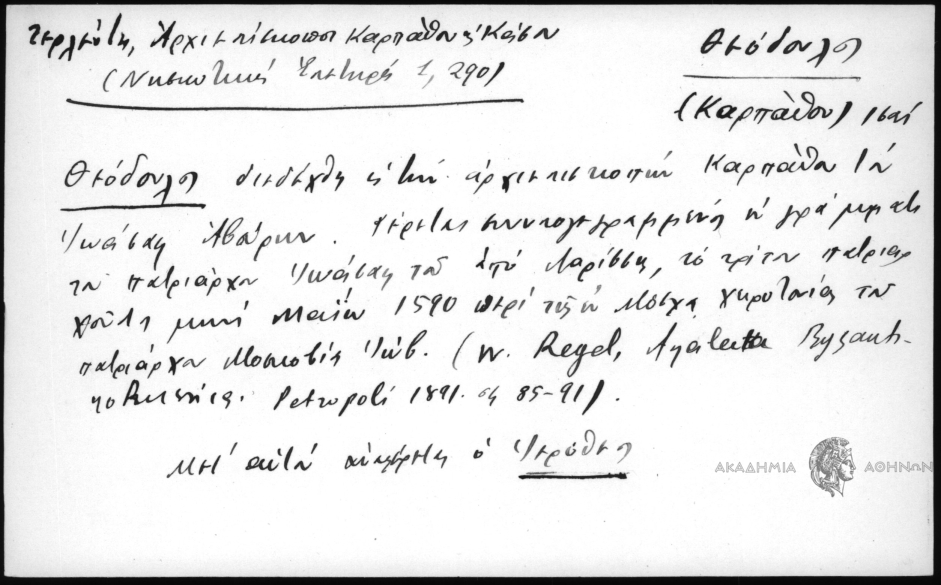 Ἀρχιεπίσκοποι Καρπάθου & Κάσου
(Νισυακὴ 1, 290)
Θεόδουλος
(Καρπάθου)
Θεόδουλος διεδέχθη εἰς τὴν ἀρχιεπισκοπὴν Καρπάθου τὸν
Φέρεται συνυπογεγραμμένος ἐν γράμματι
τοῦ πατριάρχου τοῦ ἀπὸ Λαρίσσης, τὸ τρίτον πατριαρ
χοῦντος μηνὶ Μαΐῳ 1590 περὶ τῆς ἐν Μόσχᾳ χειροτονίας τοῦ
πατριάρχου Μοσχοβίας Ἰώβ. (W. Regel, Analecta Byzanti-
no Russica. Petropoli 1891. σς 85-91).
Μετ' αὐτὸν ἀναφέρεται ὁ Ἱερόθεος
ΑΚΑΔΗΜΙΑ ΑΘΗΝΩΝ